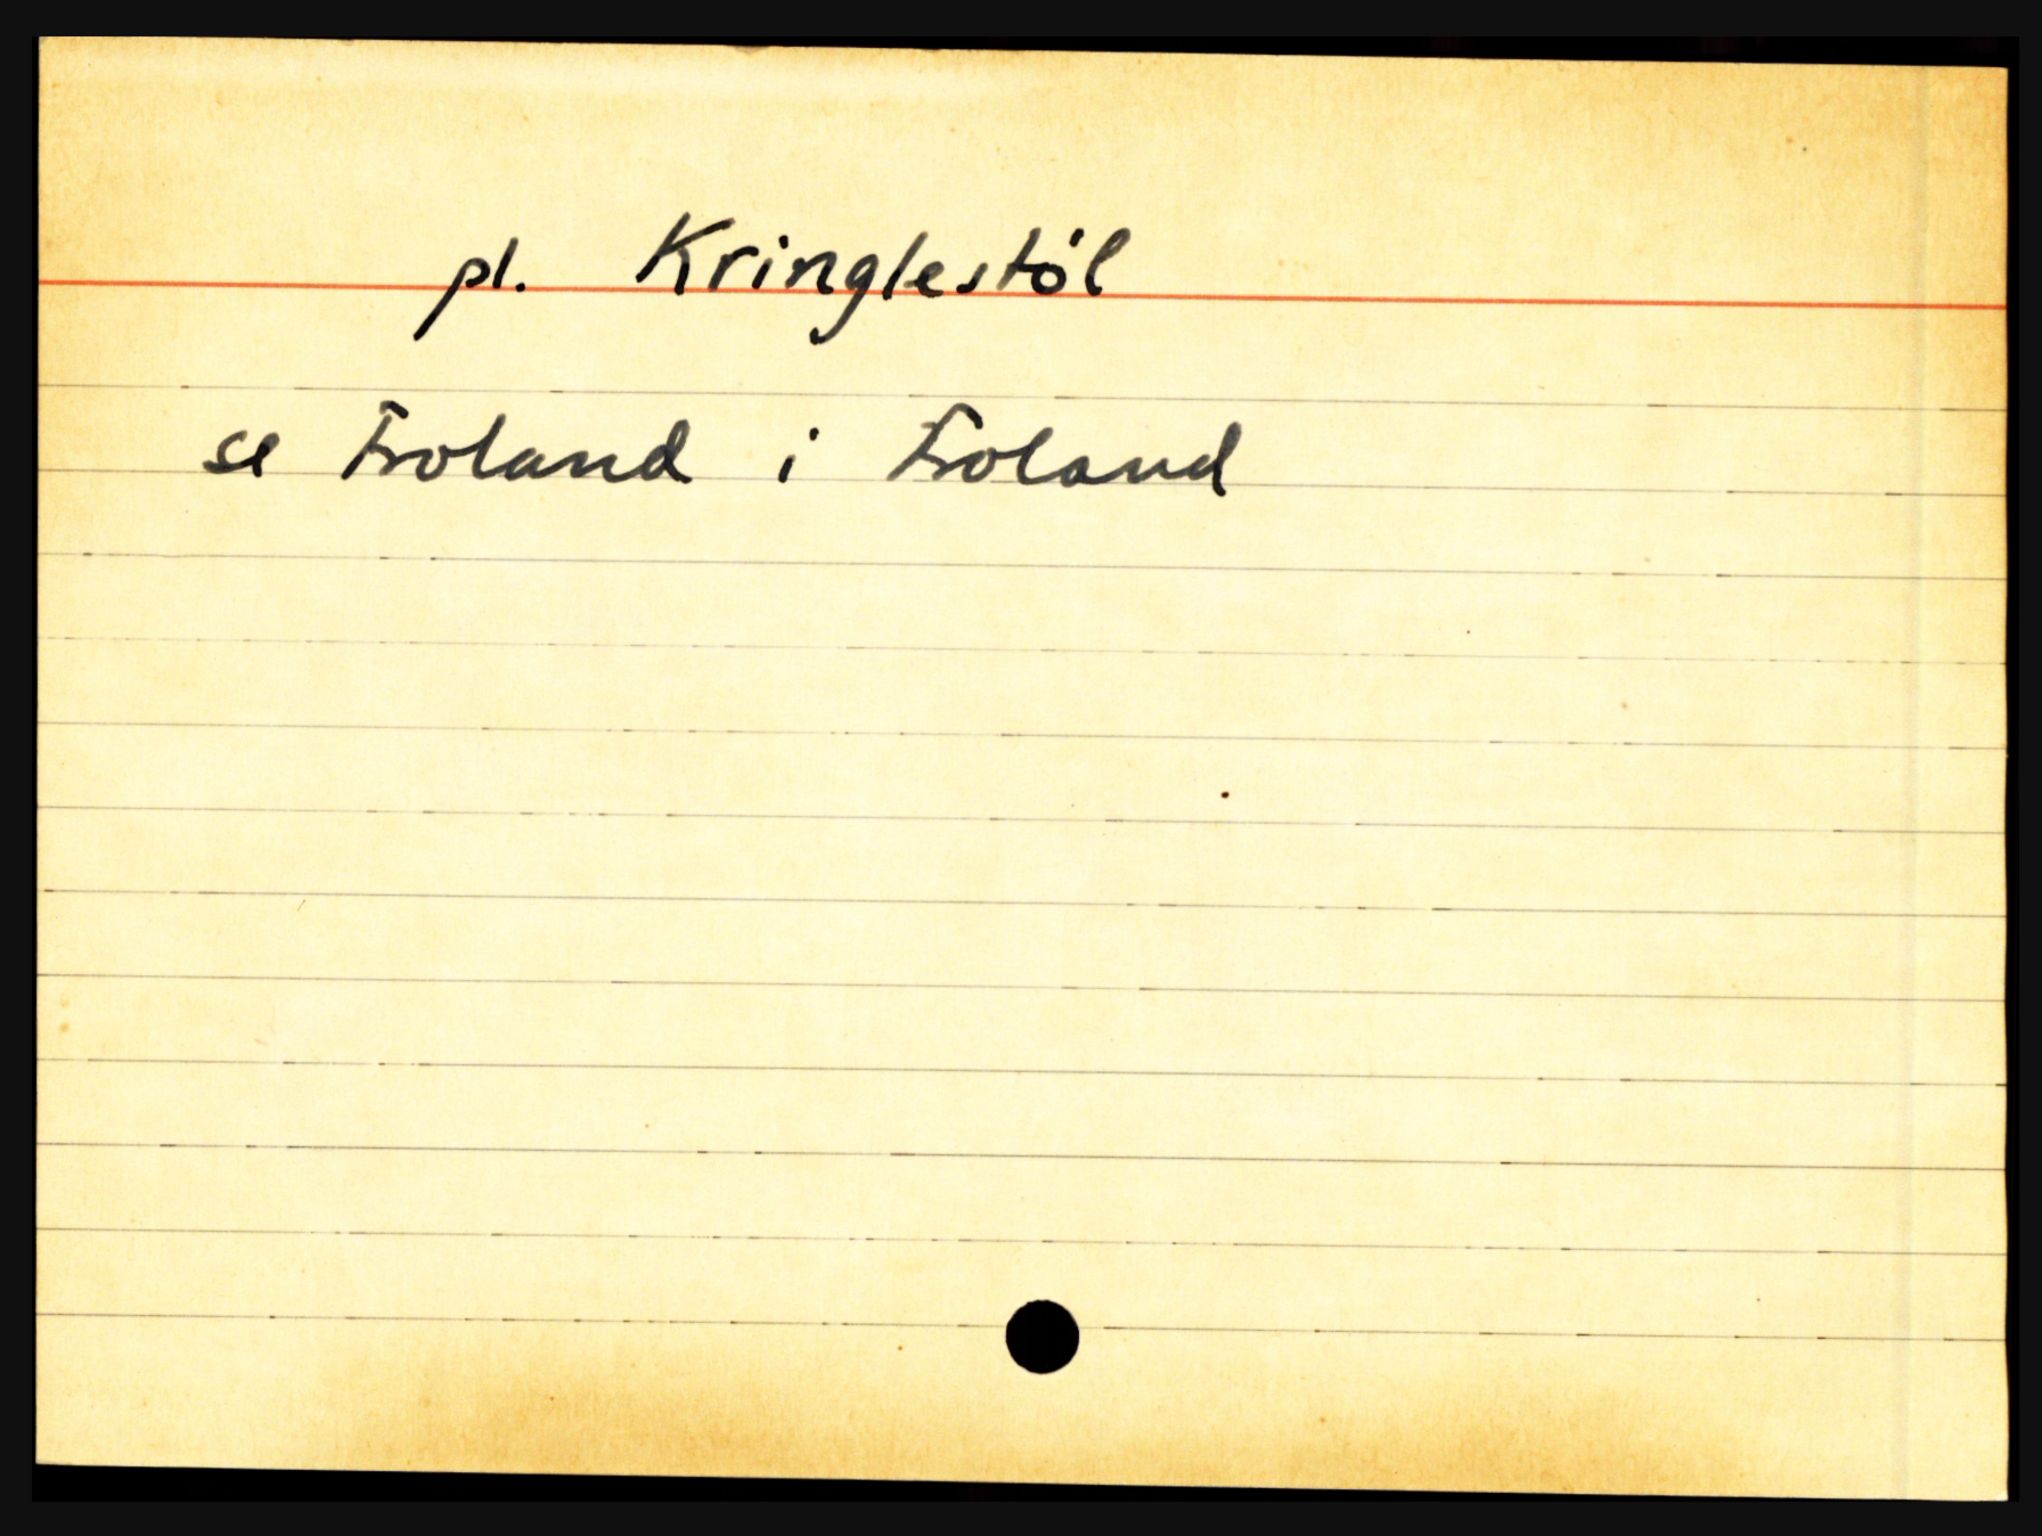 pl. Kringlestöl
se Froland i Froland